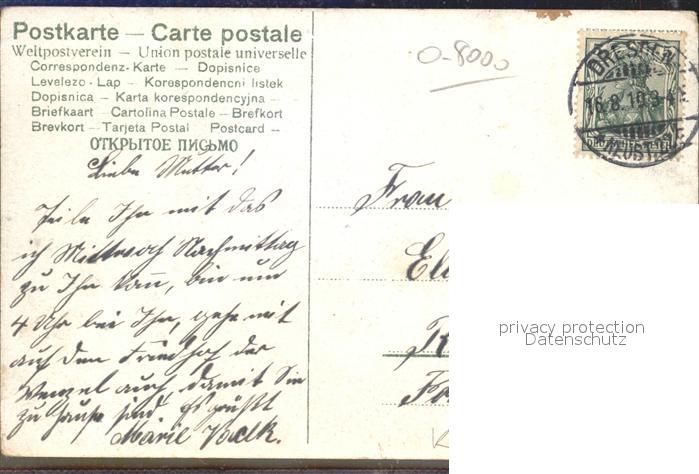 Postkarte — Carte postale
Weltpostverein — Union postale universelle
Correspondenz-Karte — Dopisnice
Levelezo-Lap — Korespondencni listek
Dopisnica — Karta korespondencyjna —
Briefkaart — Cartolina Postale — Brefkort
Brevkort — Tarjeta Postal Postcard —
ОТКРЫТОЕ ПИСЬМО
Liebe Mutter!
Teile Ihn mit das
ich Mittwoch Nachmittag
zu Ihn kann, bin um
4 Uhr bei Ihn, gehe mit
auf den Friedhof der
Wenzel auch, damit Sie
zu Hause sind. Es grüßt
Marie
0-8000
DRESDEN
16.8.10.3-4
Frau
privacy protection
Datenschutz